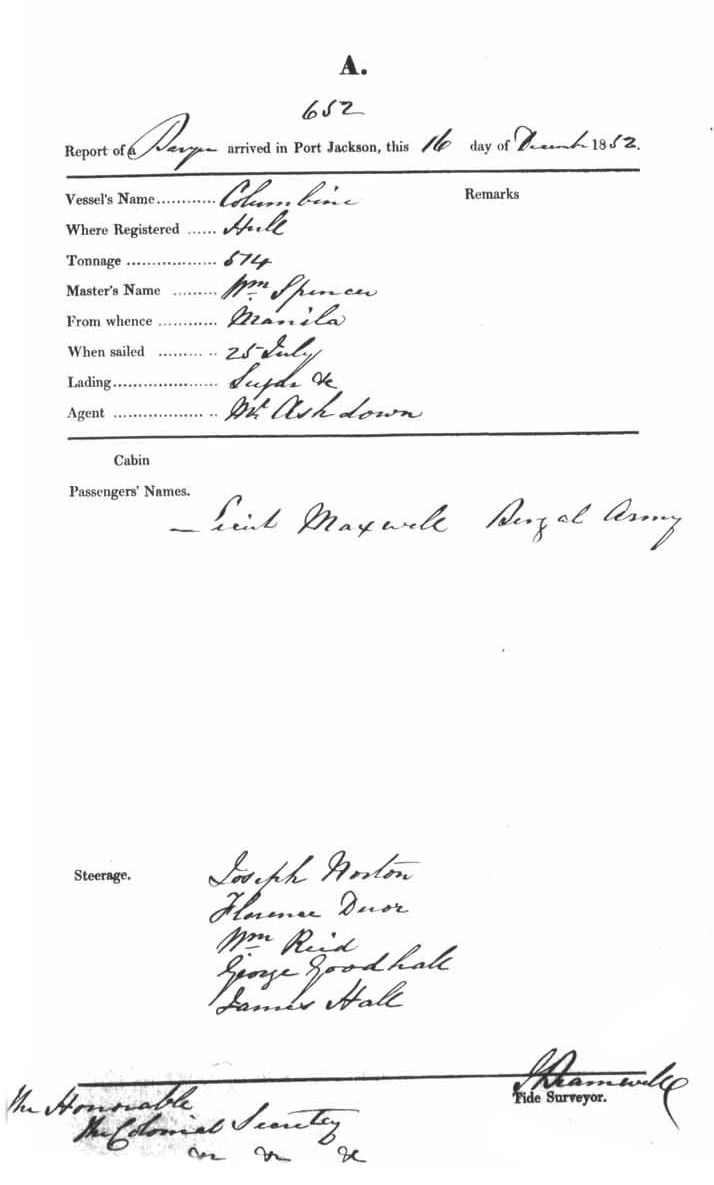 A.
652
Report of a Barque arrived in Port Jackson, this 16 day of Decemb 1852.
Vessel's Name............ Columbine Remarks
Where Registered ...... Hull
Tonnage .................. 514
Master's Name ......... Wm Spencer
From whence ............ Manila
When sailed ......... .. 25 July
Lading..................... Sugar &c
Agent .................. .. Mr Ashdown
Cabin
Passengers' Names.
— Lieut Maxwell Bengal Army
Steerage. Joseph Norton
Florence
Wm Reid
George Goodhall
James Hall
Tide Surveyor.
The Honorable
The Colonial Secretary
&c &c &c